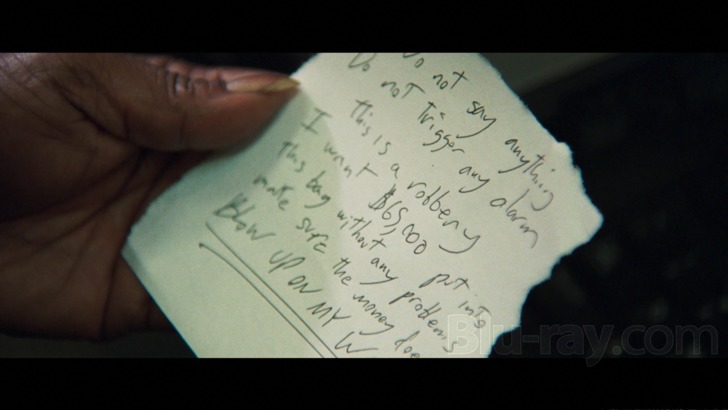 Do not say anything
Do not trigger any alarm
this is a robbery
I want $65,000 put into
this bag without any problems
make sure the money doe
BLOW UP ON MY W
Blu-ray.com